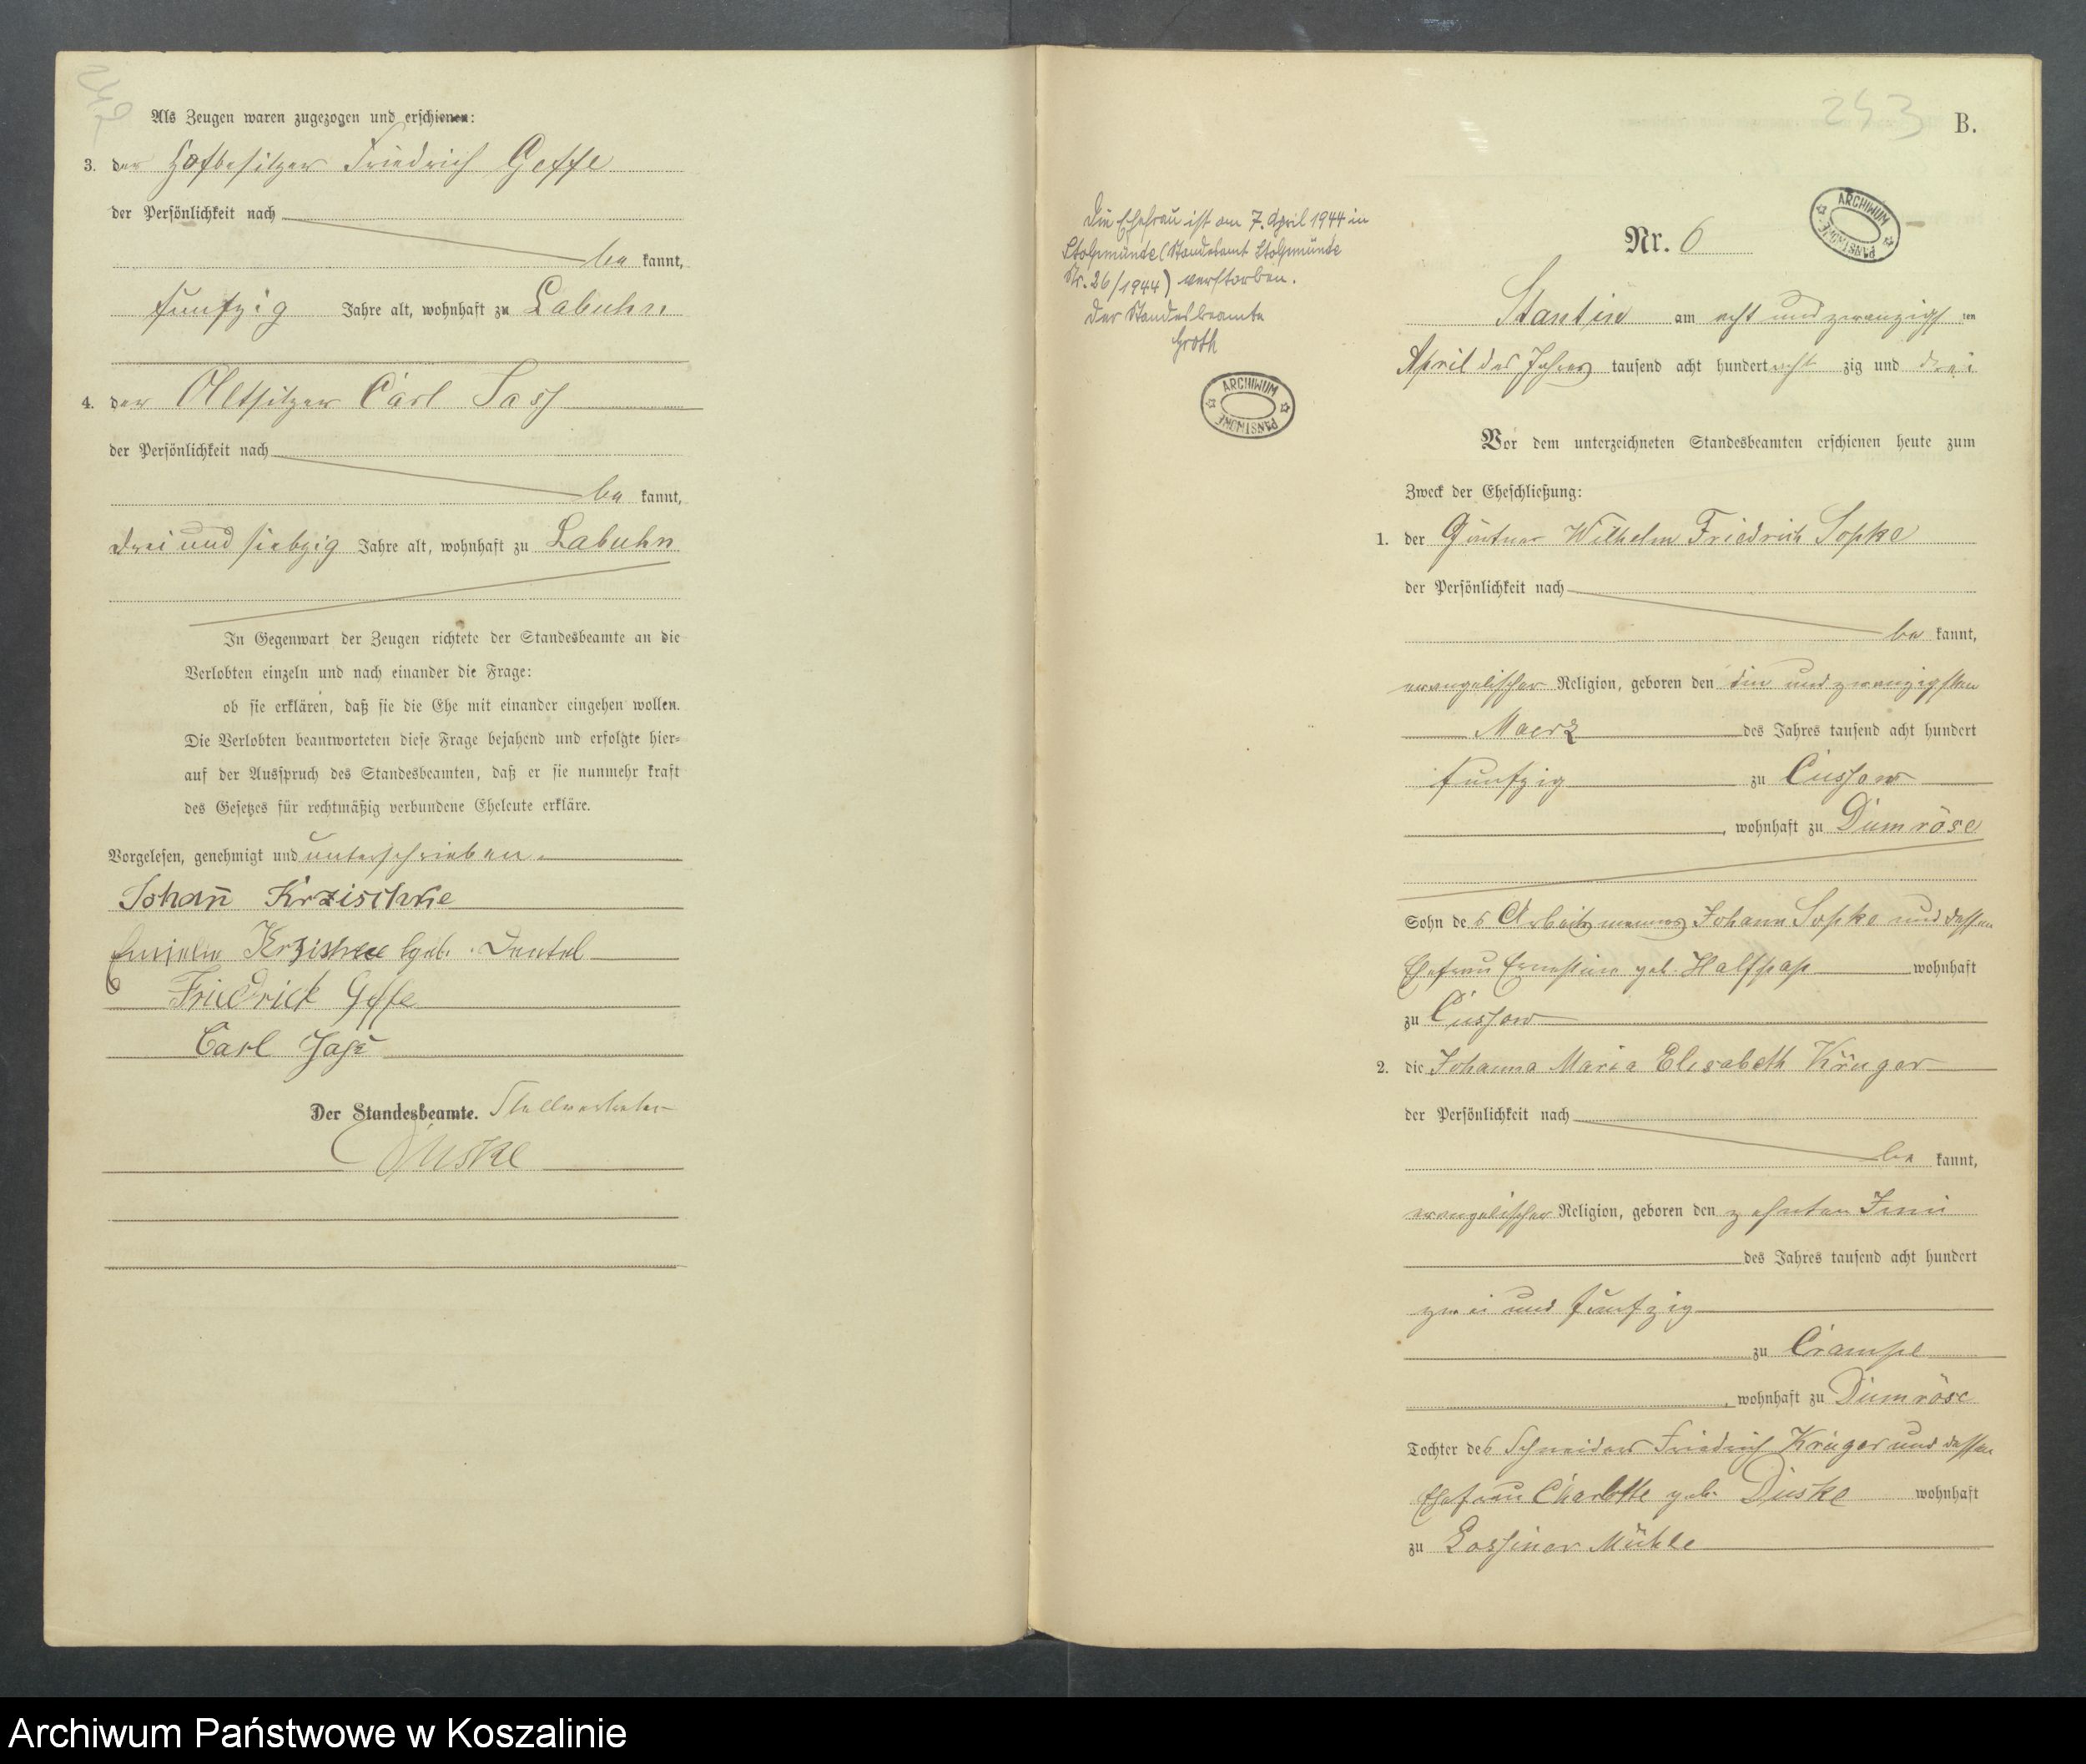 Als Zeugen waren zugezogen und erschienen:
3. der Hofbesitzer Friedrich Geffe
der Persönlichkeit nach
be kannt,
funfzig Jahre alt, wohnhaft zu Labuhn
4. der Altsitzer Carl Sass
der Persönlichkeit nach
be kannt,
drei und siebzig Jahre alt, wohnhaft zu Labuhn
In Gegenwart der Zeugen richtete der Standesbeamte an die
Verlobten einzeln und nach einander die Frage:
ob sie erklären, daß sie die Ehe mit einander eingehen wollen.
Die Verlobten beantworteten diese Frage bejahend und erfolgte hier-
auf der Ausspruch des Standesbeamten, daß er sie nunmehr kraft
des Gesetzes für rechtmäßig verbundene Eheleute erkläre.
Vorgelesen, genehmigt und unterschrieben.
Johann Krzischke
Krzischke geb.
Friedrich Geffe
Carl
Der Standesbeamte. Stellvertreter
Düske
243
B.
Die Ehefrau ist am 7. April 1944 in
Stolpmünde (Standesamt Stolpmünde
Nr. 26/1944) verstorben.
Der Standesbeamte
Groth
ARCHIWUM PAŃSTWOWE
Nr. 6
ARCHIWUM PAŃSTWOWE
Stantin am acht und zwanzigs ten
April des Jahres tausend acht hundert acht zig und drei
Vor dem unterzeichneten Standesbeamten erschienen heute zum
Zweck der Eheschließung:
1. der Gärtner Wilhelm Friedrich Sopke
der Persönlichkeit nach
be kannt,
evangelischer Religion, geboren den ein und zwanzigsten
Maerz des Jahres tausend acht hundert
funfzig zu Cussow
, wohnhaft zu Dumröse
Sohn des Arbeitsmannes Johann Sopke und dessen
Ehefrau Ernestine geb. Halfpap wohnhaft
zu Cussow
2. die Johanna Maria Elisabeth Krüger
der Persönlichkeit nach
be kannt,
evangelischer Religion, geboren den zehnten Juni
des Jahres tausend acht hundert
zwei und funfzig
zu Crampe
, wohnhaft zu Dumröse
Tochter des Schneiders Friedrich Krüger und dessen
Ehefrau Charlotte geb. Düske wohnhaft
zu Lossiner Mühle
Archiwum Państwowe w Koszalinie